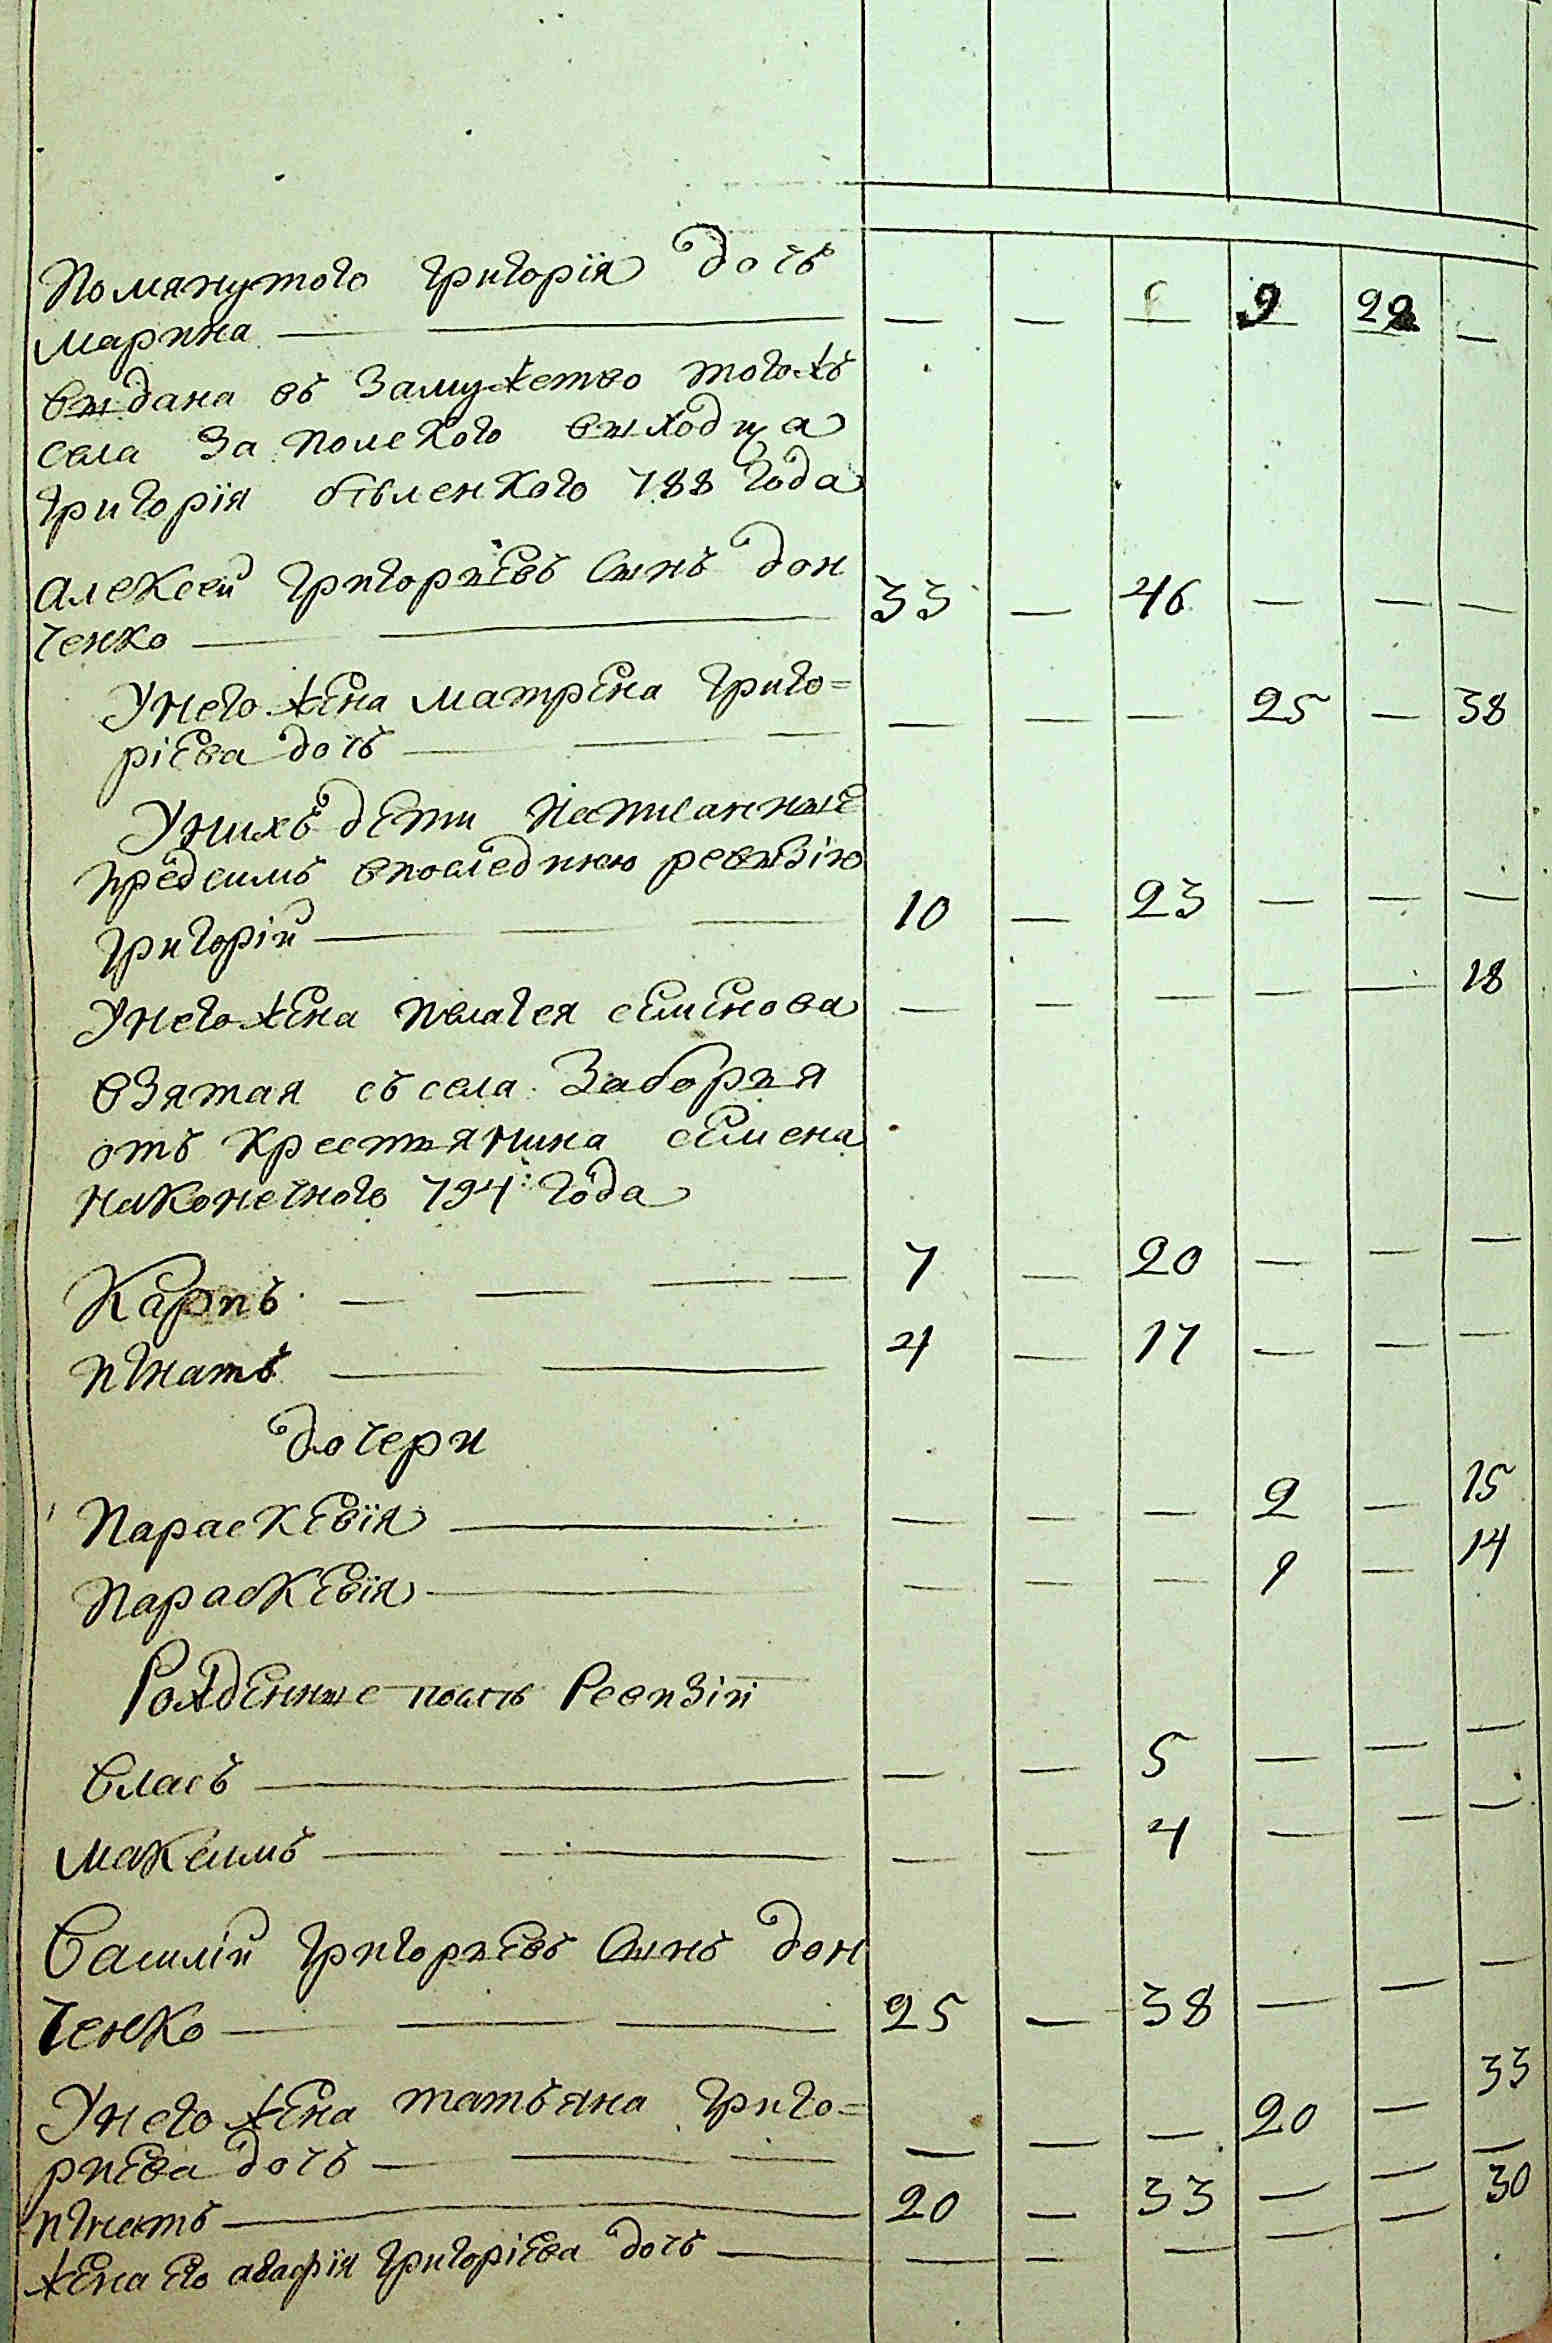 Помянутого Григорія дочь
Марина — — — — 9 22 —
выдана въ Замужство тогожъ
села За полского выходца
Григорія бѣленкого 788 года
Алексей Григориевъ Сынъ дон
ченко — 33 — 46 — — —
Унего жена Матрена Григо=
ріева дочь — — — — 25 — 38
Унихъ дети Написанные
предсимъ впоследнюю ревизію
Григорій — 10 — 23 — — —
Унего жена Пелагея семенова — — — — — 18
взятая съ села Заборья
отъ крестьянина семена
Наконечного 794: года
Карпъ — 7 — 20 — — —
игнатъ — 4 — 17 — — —
дочери
Параскевія — — — — 2 — 15
Параскевія — — — — 1 — 14
Рожденные после Ревизіи
Власъ — — — 5 — — —
Максимъ — — — 4 — — —
Василій Григориевъ Сынъ дон
ченко — 25 — 38 — — —
Унего жена татьяна Григо=
риева дочь — — — — 20 — 33
игнатъ — 20 — 33 — — —
жена его агафія Григоріева дочь — — — — — — 30